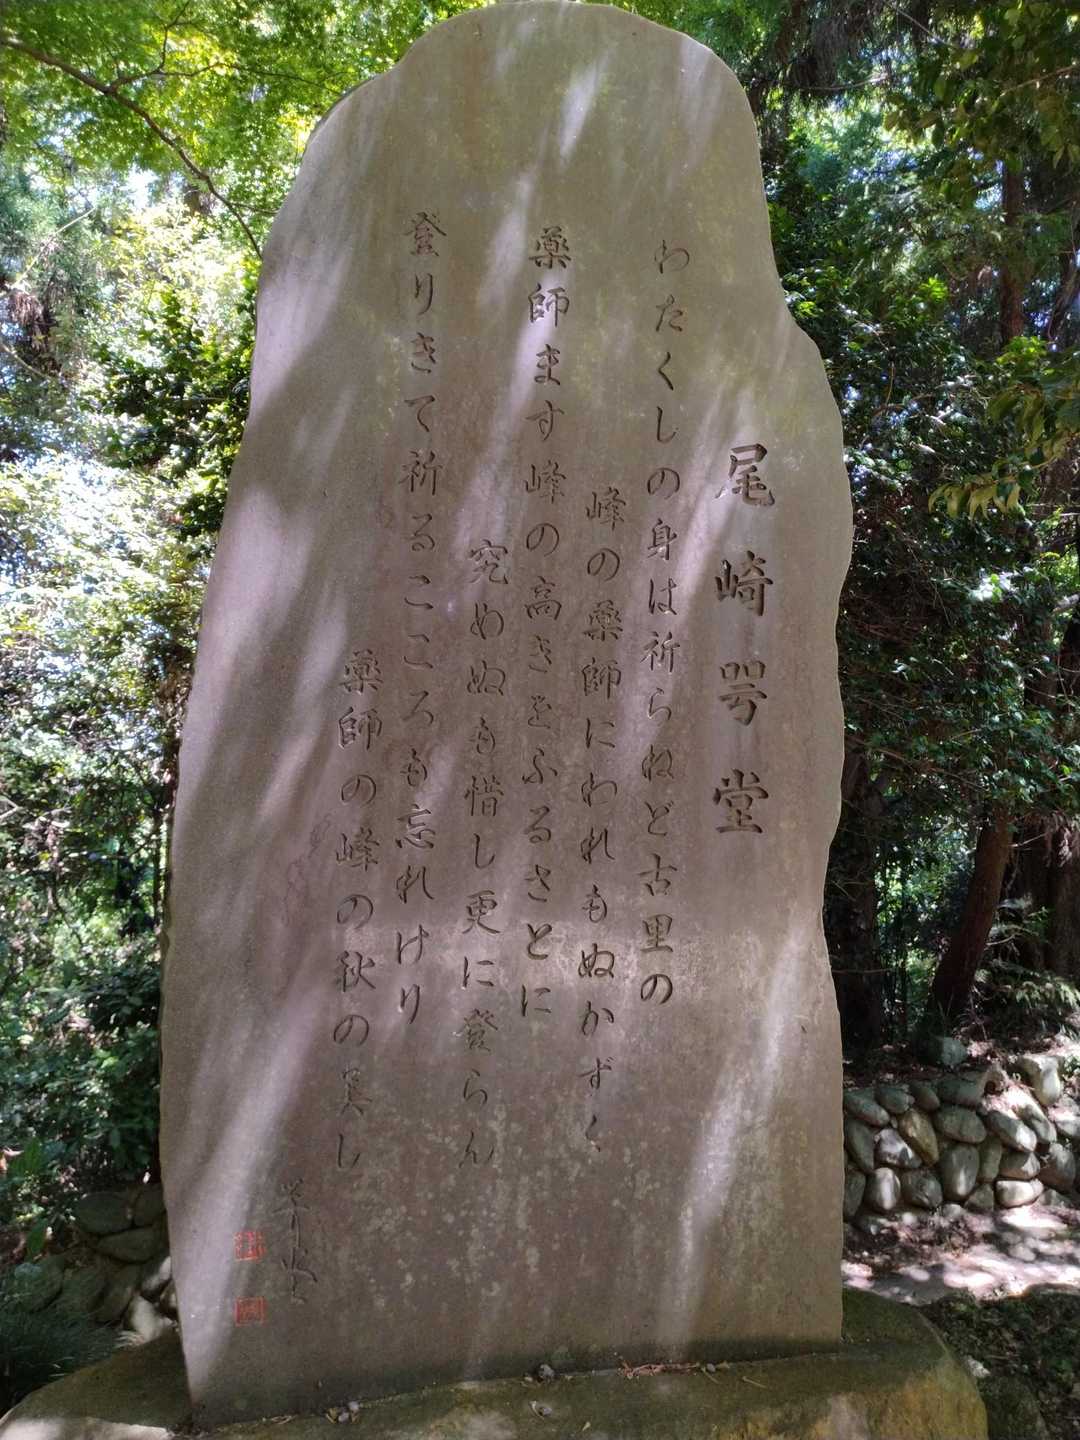 尾崎咢堂
わたくしの身は祈らねど古里の
峰の薬師にわれもぬかずく
薬師ます峰の高きをふるさとに
究めぬも惜し更に登らん
登りきて祈るこころも忘れけり
薬師の峰の秋の美し
咢堂